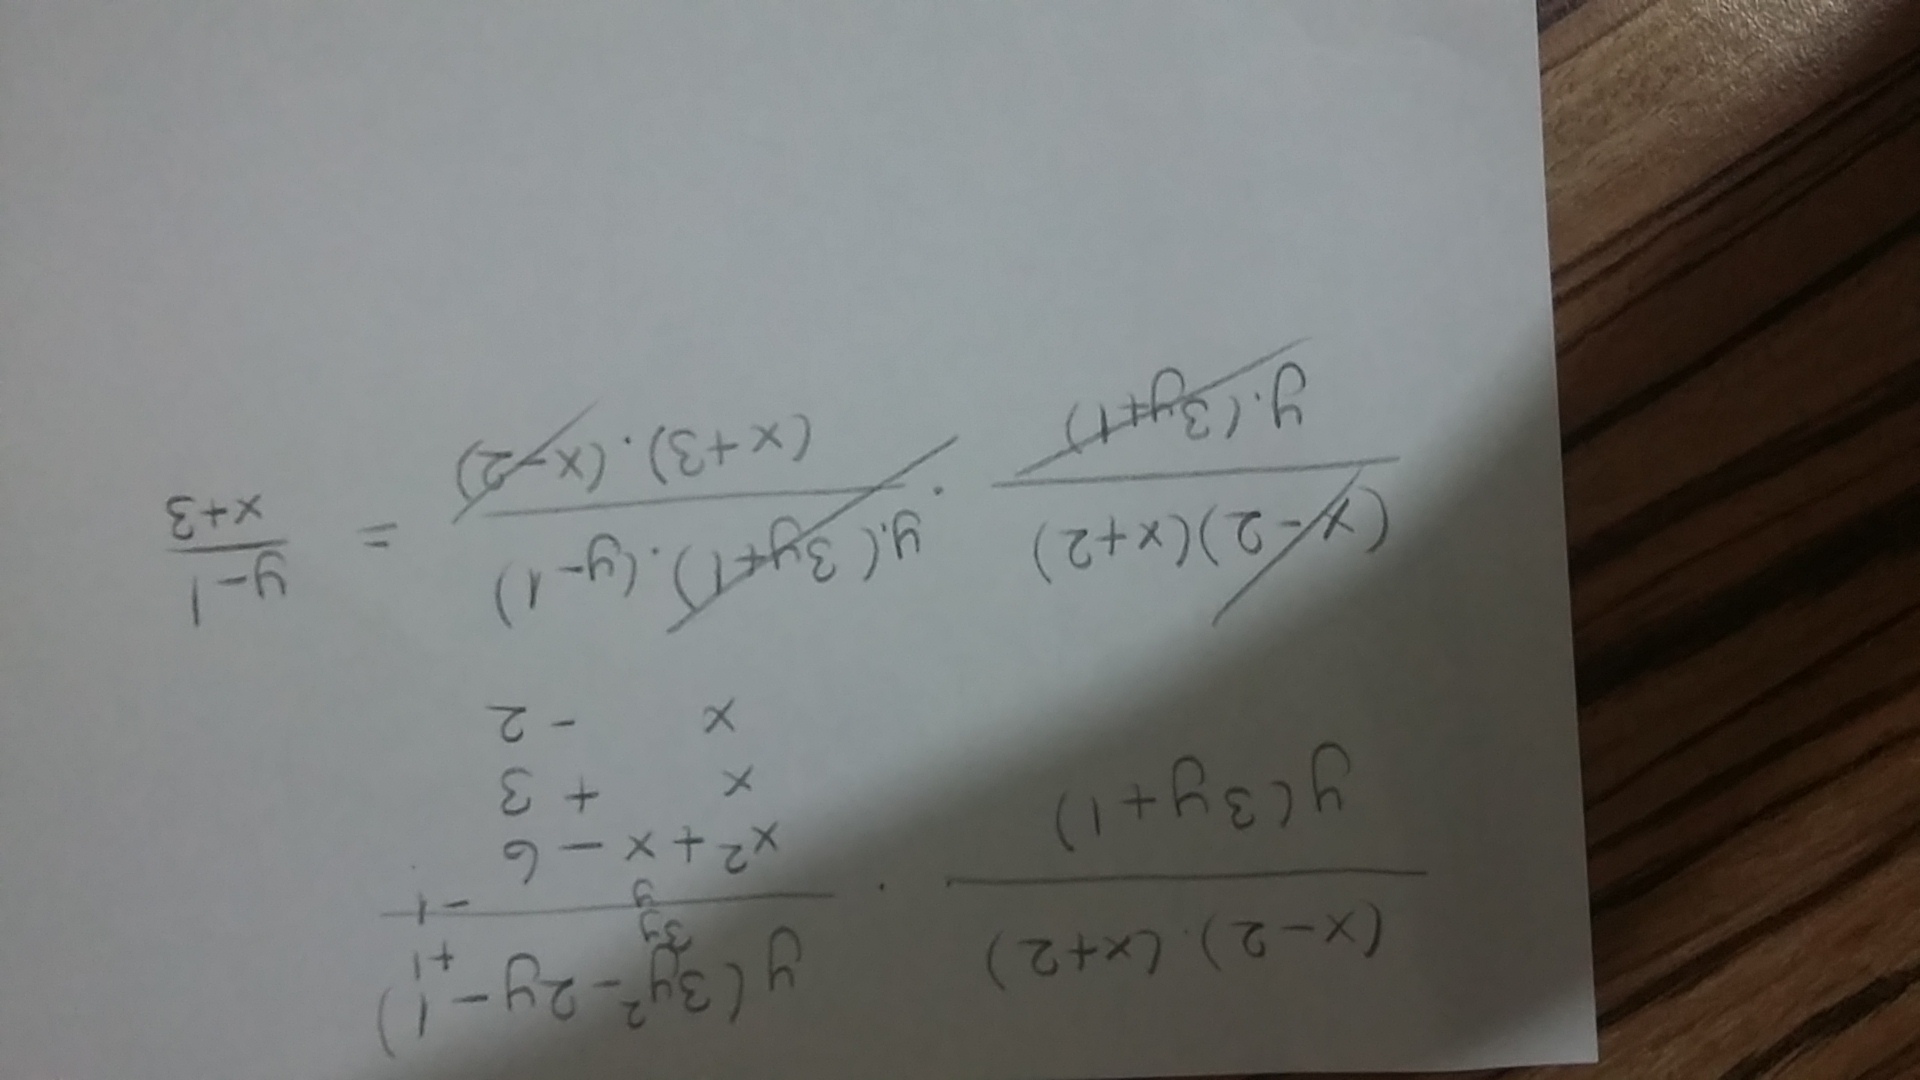 (x-2).(x+2) / y(3y+1) · y(3y²-2y-1) / x²+x-6
3y +1
y -1
x + 3
x - 2
(x-2)(x+2) / y.(3y+1) · y.(3y+1).(y-1) / (x+3).(x-2) = y-1 / x+3